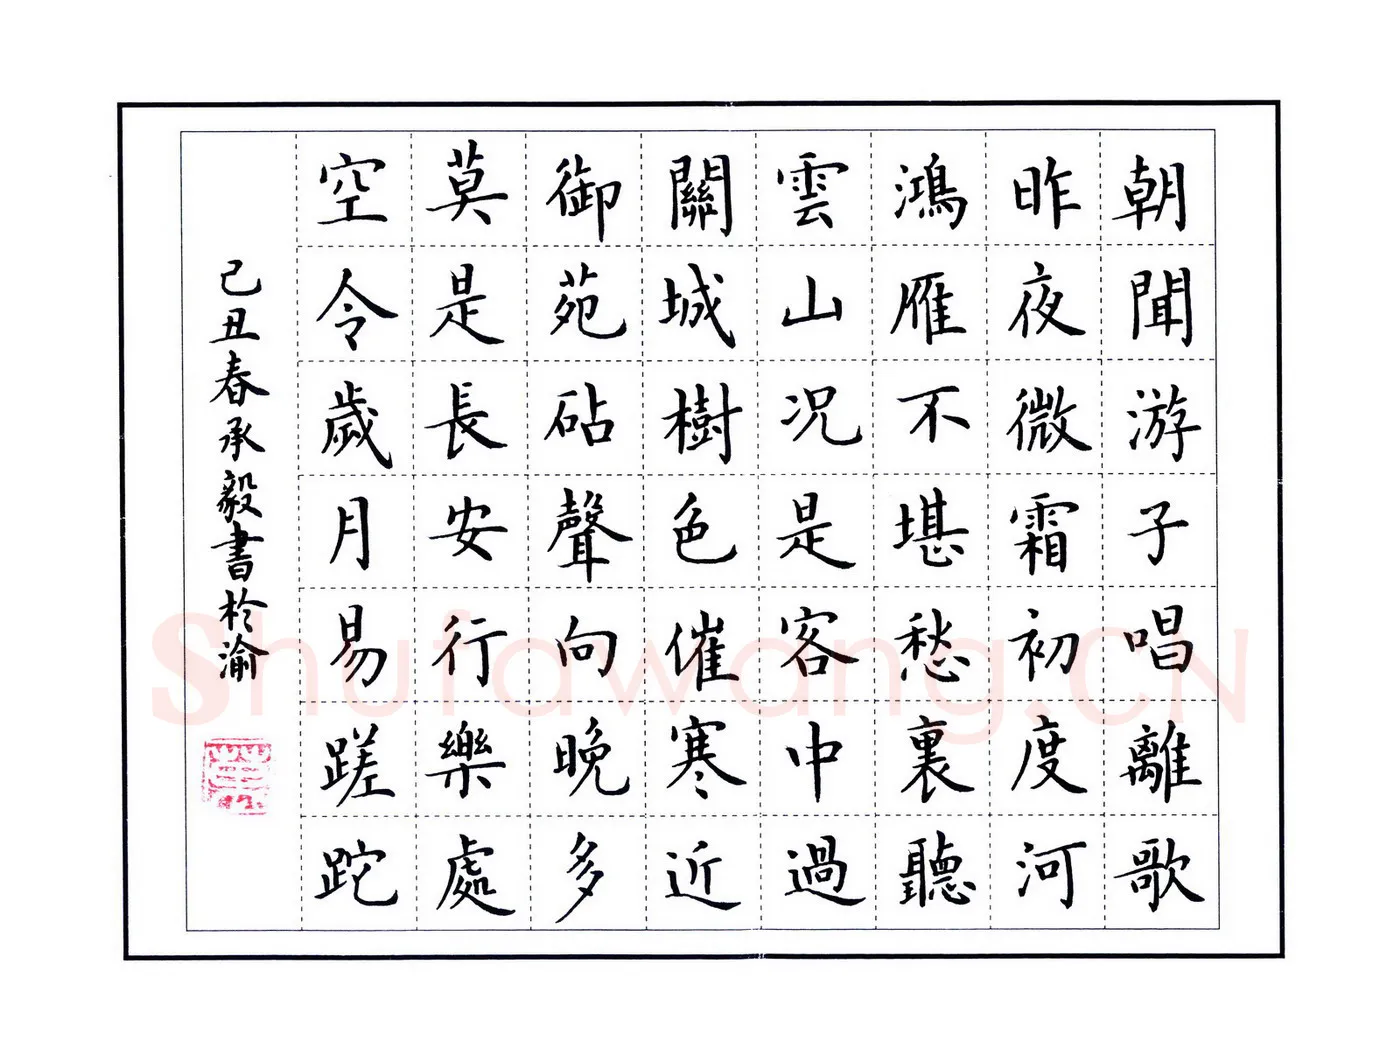 朝聞游子唱離歌
昨夜微霜初度河
鴻雁不堪愁裏聽
雲山况是客中過
關城樹色催寒近
御苑砧聲向晚多
莫是長安行樂處
空令歲月易蹉跎
己丑春承毅書於渝
Shufawang.CN